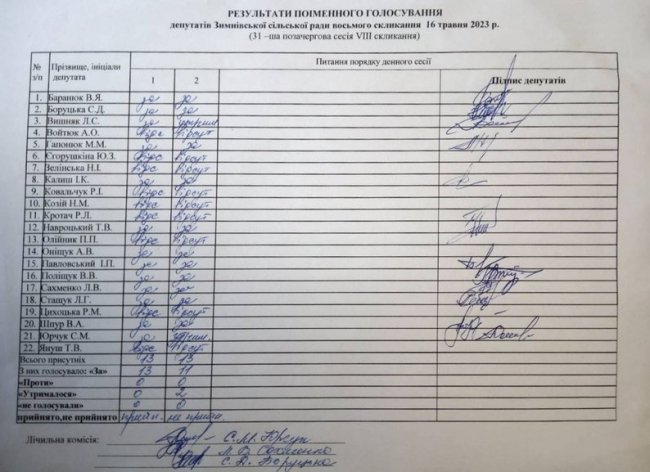 РЕЗУЛЬТАТИ ПОІМЕННОГО ГОЛОСУВАННЯ
депутатів Зимнівської сільської ради восьмого скликання 16 травня 2023 р.
(31 –ша позачергова сесія VIII скликання)
№ з/п Прізвище, ініціали депутата Питання порядку денного сесії
1 2 Підпис депутатів
1. Баранюк В.Я. за за
2. Боруцька С.Д. за за
3. Вишняк Л.С. за
4. Войтюк А.О. Відс Відсут
5. Гапонюк М.М. за за
6. Єгорушкіна Ю.З. Відс Відсут
7. Зелінська Н.І. Відс Відсут
8. Калиш І.К. за за
9. Ковальчук Р.І. Відс Відсут
10. Козій Н.М. Відс Відсут
11. Кротач Р.Л. Відс Відсут
12. Навроцький Т.В. за за
13. Олійник П.П. Відс Відсут
14. Оніщук А.В. за за
15. Павловський І.П. за за
16. Поліщук В.В. за за
17. Сахменко Л.В. за за
18. Стащук Л.Г. за за
19. Цихоцька Р.М. Відс Відсут
20. Шпур В.А. за за
21. Юрчук С.М. за
22. Януш Т.В. Відс Відсут
Всього присутніх 13 13
З них голосувало: «За» 13 11
«Проти» 0 0
«Утрималося» 0 2
«не голосували» 0 0
прийнято,не прийнято прийн. не прийн.
Лічильна комісія:
С.М. Юрчук
С.Д. Боруцька